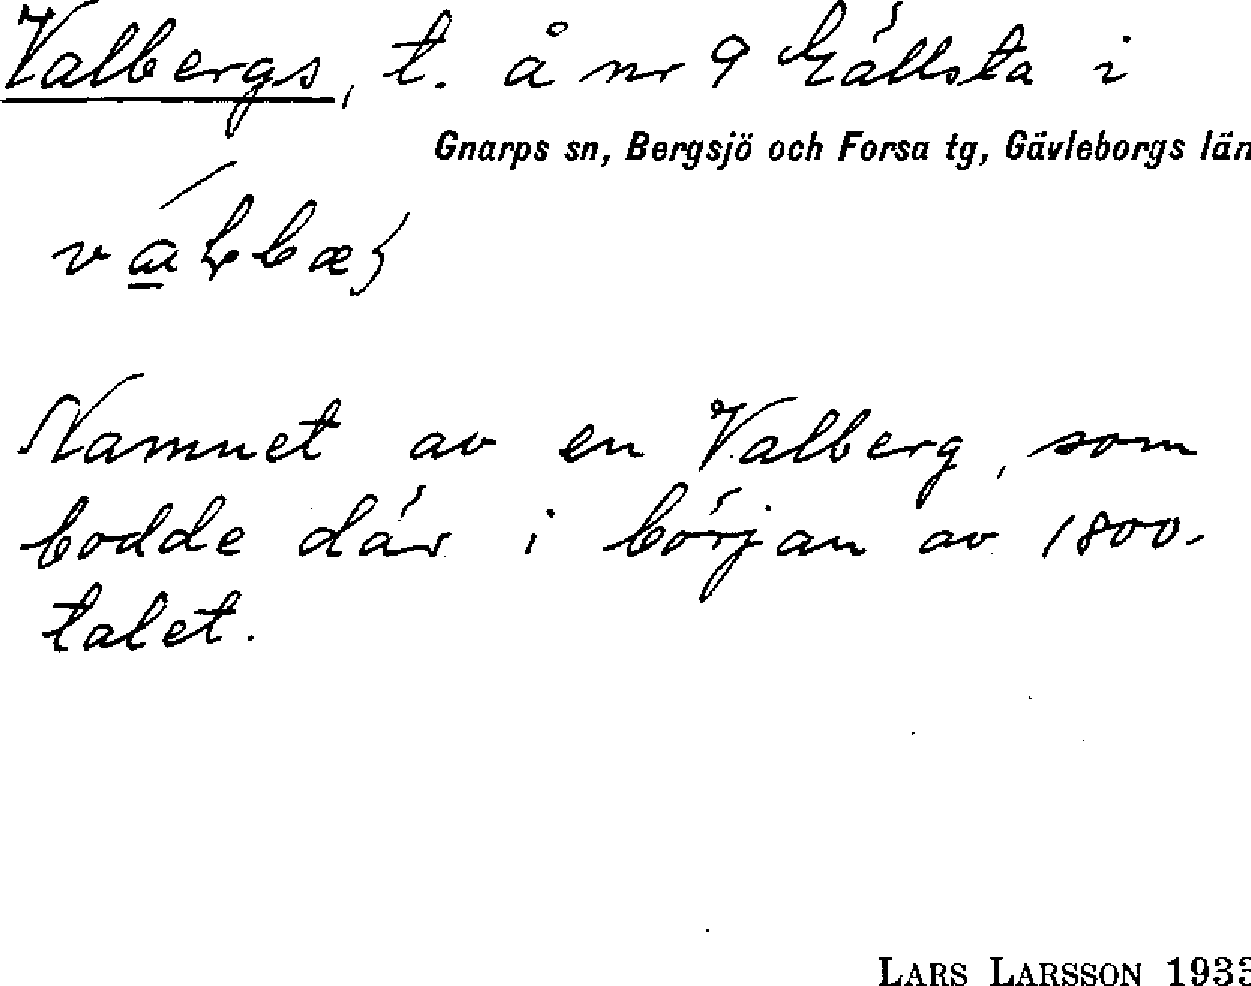 Valbergs, t. å nr 9 Källsta i
Gnarps sn, Bergsjö och Forsa tg, Gävleborgs län
Namnet av en Valberg, som
bodde där i början av 1800-
talet.
LARS LARSSON